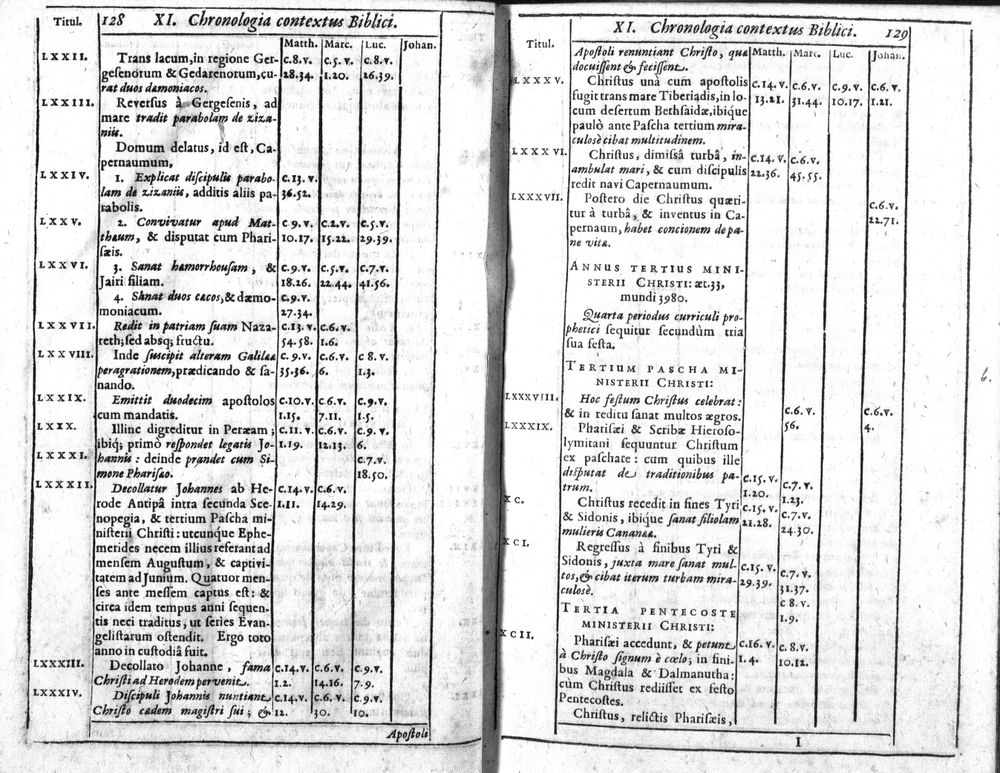 Titul. 128 XI. Chronologia contextus Biblici.
Matth. Marc. Luc. Johan.
LXXII. Trans lacum, in regione Ger- c.8.v. c.5.v. c.8.v.
gesenorum & Gedarenorum, cu- 28.34. 1.20. 26.39.
rat duos dæmoniacos.
LXXIII. Reversus à Gergesenis, ad
mare tradit parabolam de ziza-
niis.
Domum delatus, id est, Ca-
pernaumum,
LXXIV. 1. Explicat discipulis parabo- c.13.v.
lam de zizaniis, additis aliis pa- 36.52.
rabolis.
LXXV. 2. Convivatur apud Mat- c.9.v. c.2.v. c.5.v.
thæum, & disputat cum Phari- 10.17. 15.22. 29.39.
sæis.
LXXVI. 3. Sanat hæmorrhousam, & c.9.v. c.5.v. c.7.v.
Jairi filiam. 18.26. 22.44. 41.56.
4. Sanat duos cæcos, & dæmo- c.9.v.
moniacum. 27.34.
LXXVII. Redit in patriam suam Naza- c.13.v. c.6.v.
reth; sed absq; fructu. 54.58. 1.6.
LXXVIII. Inde suscipit alteram Galilææ c.9.v. c.6.v. c 8.v.
peragrationem, prædicando & sa- 35.36. 6. 1.3.
nando.
LXXIX. Emittit duodecim apostolos c.10.v. c.6.v. c.9.v.
cum mandatis. 1.15. 7.11. 1.5.
LXXX. Illinc digreditur in Peræam; c.11.v. c.6.v. c.9.v.
ibiq; primò respondet legatis Jo- 1.19. 12.13. 6.
LXXXI. hannis: deinde prandet cum Si- c.7.v.
mone Pharisæo. 18.50.
LXXXII. Decollatur Johannes ab He- c.14.v. c.6.v.
rode Antipâ intra secunda Sce- 1.11. 14.29.
nopegia, & tertium Pascha mi-
nisterii Christi: utcunque Ephe-
merides necem illius referant ad
mensem Augustum, & captivi-
tatem ad Junium. Quatuor men-
ses ante messem captus est: &
circa idem tempus anni sequen-
tis neci traditus, ut series Evan-
gelistarum ostendit. Ergo toto
anno in custodiâ fuit.
LXXXIII. Decollato Johanne, fama c.14.v. c.6.v. c.9.v.
Christi ad Herodem pervenit. 1.2. 14.16. 7.9.
LXXXIV. Discipuli Johannis nuntiant c.14.v. c.6.v. c.9.v.
Christo cædem magistri sui; & 12. 30. 10.
Apostoli
XI. Chronologia contextus Biblici. 129
Titul. Matth. Marc. Luc. Johan.
Apostoli renuntiant Christo, quæ
docuissent & fecissent.
LXXXV. Christus unà cum apostolis c.14.v. c.6.v. c.9.v. c.6.v.
fugit trans mare Tiberiadis, in lo- 13.21. 31.44. 10.17. 1.21.
cum desertum Bethsaidæ, ibique
paulò ante Pascha tertium mira-
culosè cibat multitudinem.
LXXXVI. Christus, dimissâ turbâ, in- c.14.v. c.6.v.
ambulat mari, & cum discipulis 22.36. 45.55.
redit navi Capernaumum.
LXXXVII. Postero die Christus quæri- c.6.v.
tur à turbâ, & inventus in Ca- 22.71.
pernaum, habet concionem de pa-
ne vitæ.
ANNUS TERTIUS MINI-
STERII CHRISTI: æt.33,
mundi 3980.
Quarta periodus curriculi pro-
phetici sequitur secundùm tria
sua festa.
TERTIUM PASCHA MI-
NISTERII CHRISTI:
LXXXVIII. Hoc festum Christus celebrat: c.6.v. c.6.v.
& in reditu sanat multos ægros. 56. 4.
LXXXIX. Pharisæi & Scribæ Hieroso-
lymitani sequuntur Christum
ex paschate: cum quibus ille
disputat de traditionibus pa- c.15.v. c.7.v.
trum. 1.20. 1.23.
XC. Christus recedit in fines Tyri c.15.v. c.7.v.
& Sidonis, ibique sanat filiolam 21.28. 24.30.
mulieris Cananææ.
XCI. Regressus à finibus Tyri &
Sidonis, juxta mare sanat mul- c.15.v. c.7.v.
tos, & cibat iterum turbam mira- 29.39. 31.37.
culosè. c 8.v.
TERTIA PENTECOSTE 1.9.
MINISTERII CHRISTI:
XCII. Pharisæi accedunt, & petunt c.16.v. c.8.v.
à Christo signum è cœlo; in fini- 1.4. 10.12.
bus Magdala & Dalmanutha:
cùm Christus rediisset ex festo
Pentecostes.
Christus, relictis Pharisæis,
I
6.